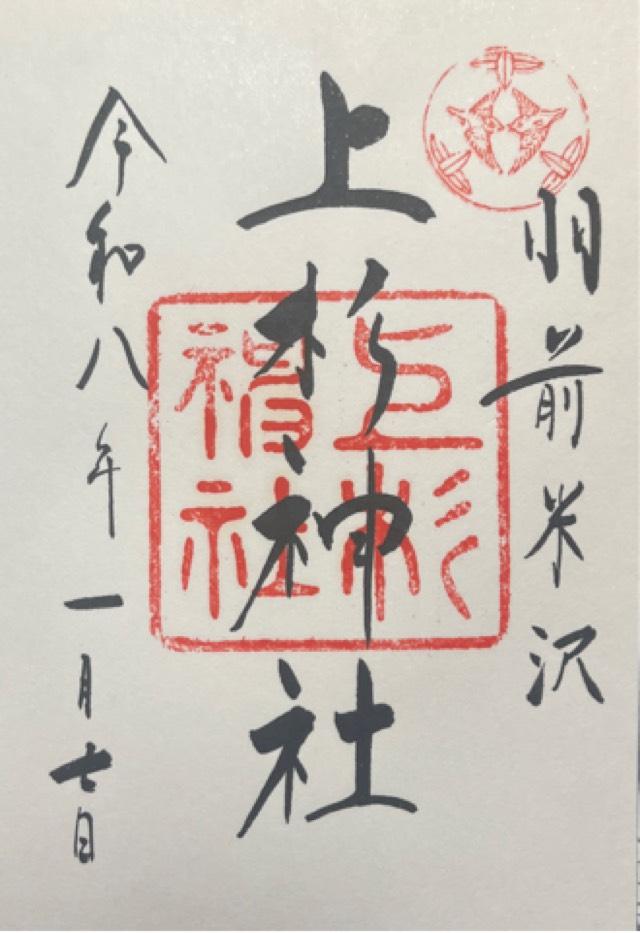 羽前米沢
上杉神社
上杉神社
令和八年一月七日